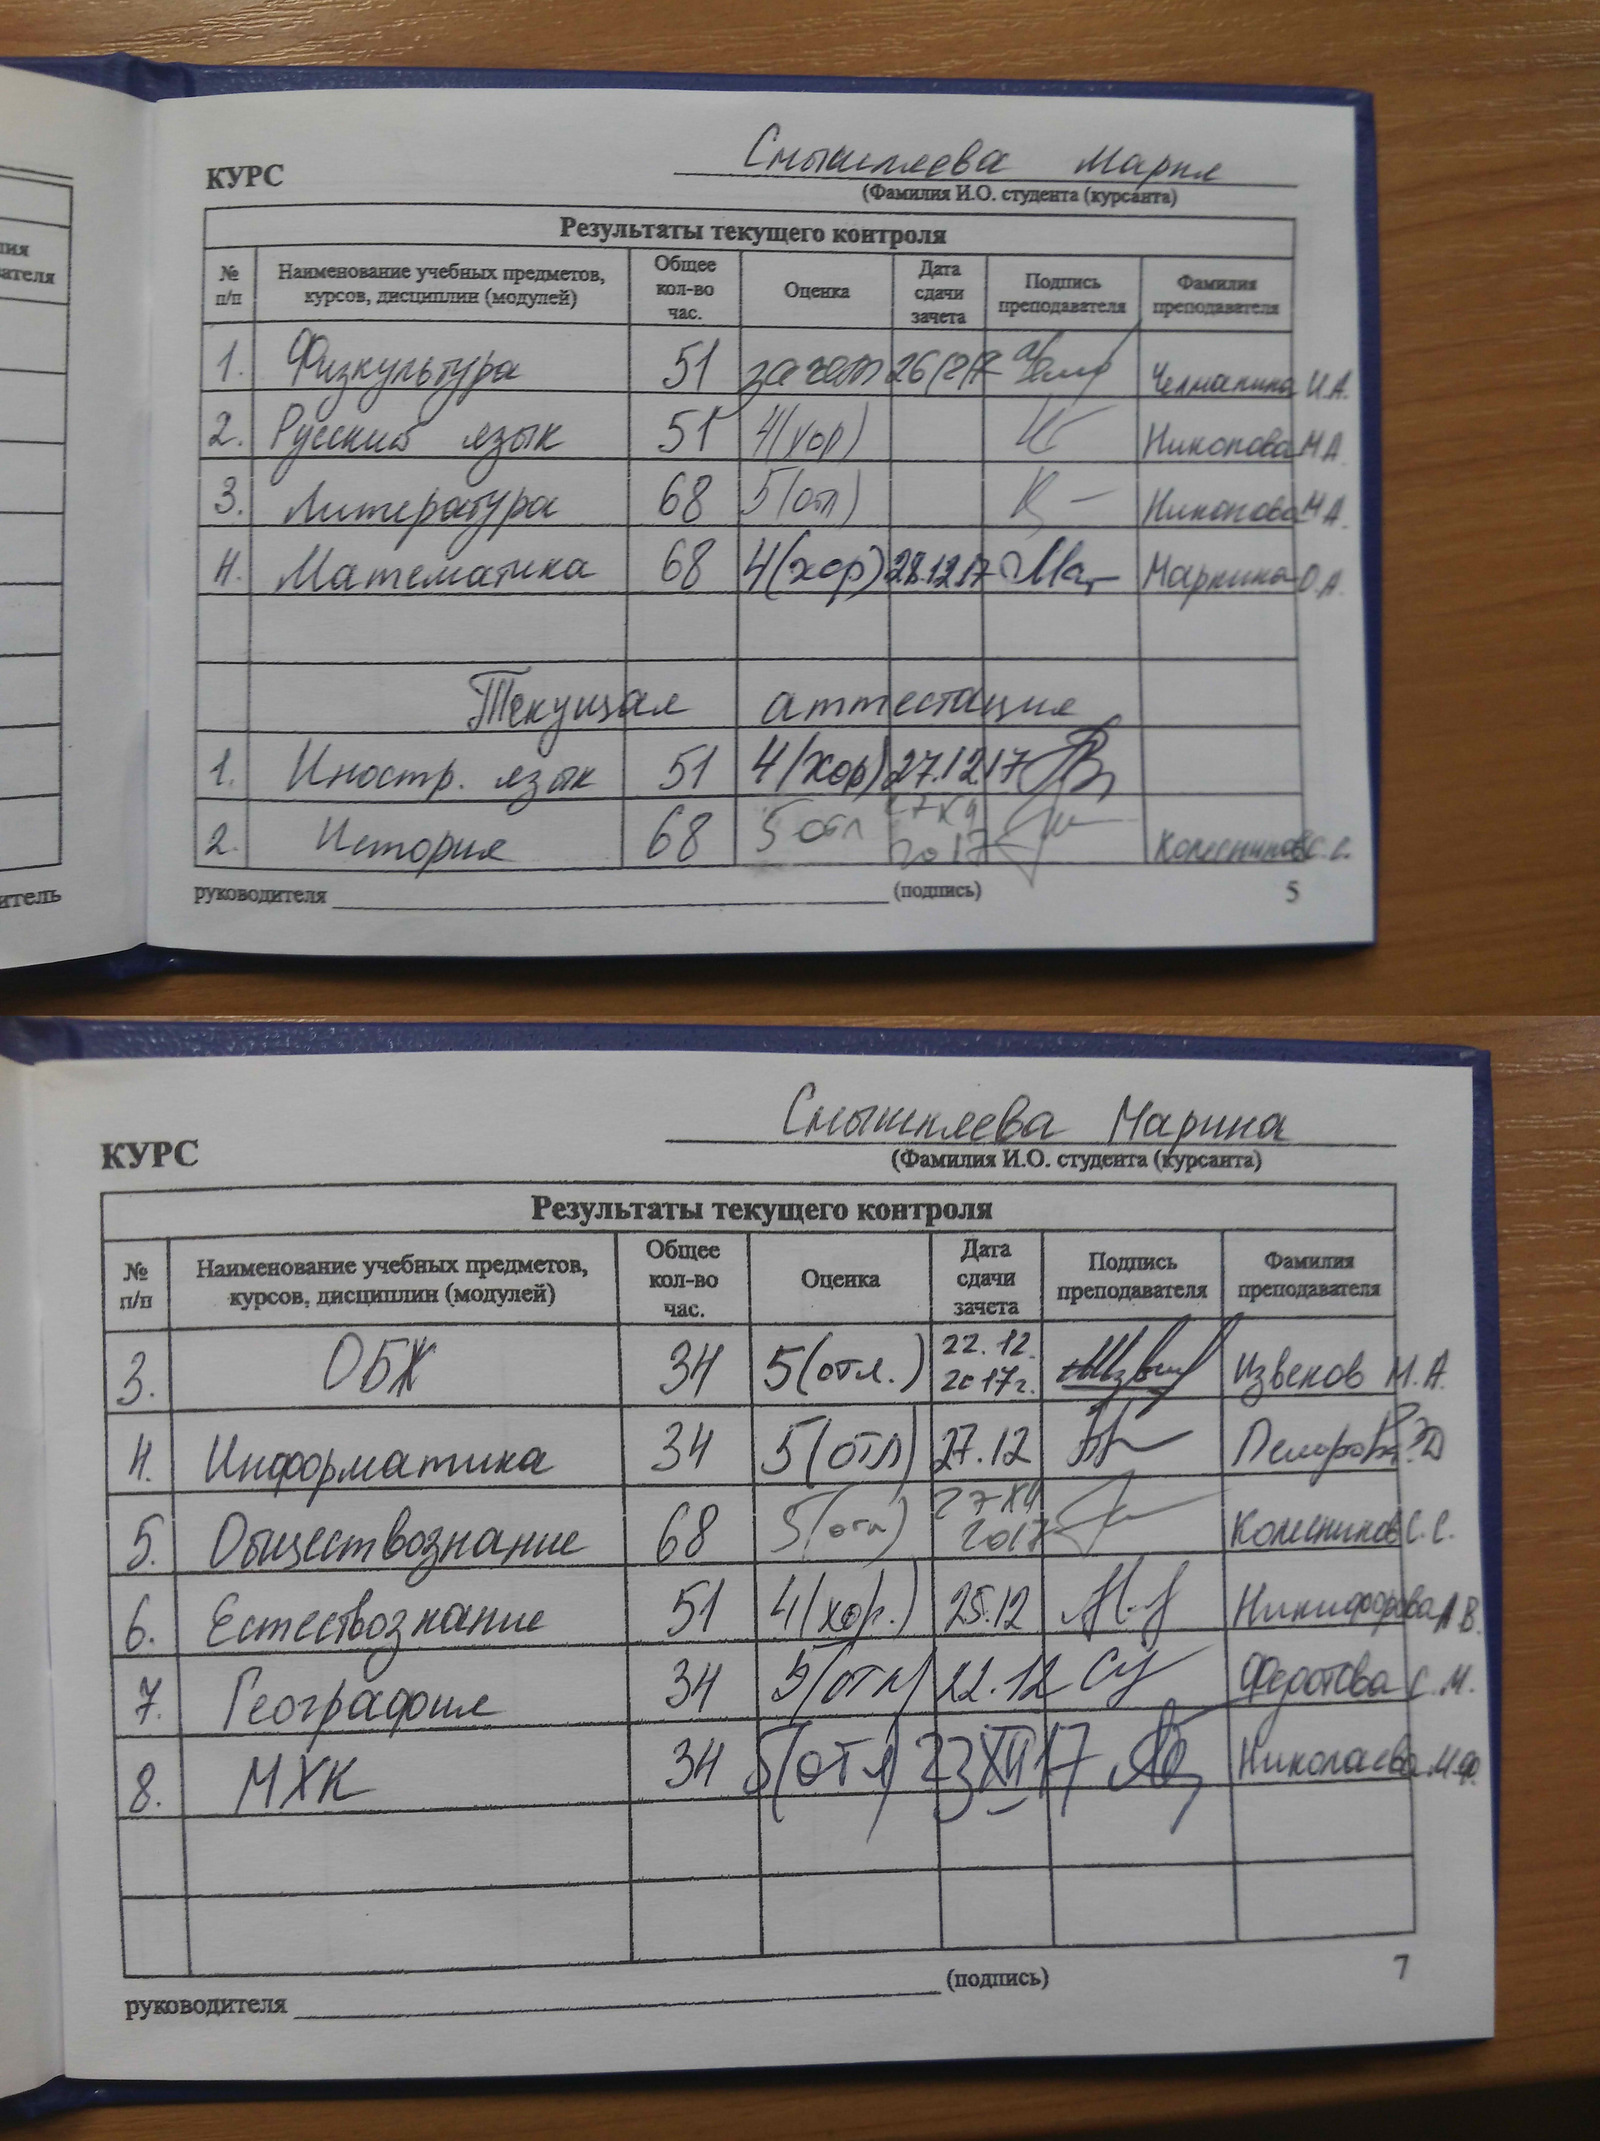 КУРС Смышляева Мария
(Фамилия И.О. студента (курсанта)
Результаты текущего контроля
№ п/п Наименование учебных предметов, курсов, дисциплин (модулей) Общее кол-во час. Оценка Дата сдачи зачета Подпись преподавателя Фамилия преподавателя
ия
ателя
1. Физкультура 51 зачет И.А.
2. Русский язык 51 4(хор) Никонова Н.А.
3. Литература 68 5(отл) Никонова Н.А.
4. Математика 68 4(хор) 28.12.17 Маркина О.А.
Текущая аттестация
1. Иностр. язык 51 4(хор) 27.12.17
2. История 68 5 отл 27 XII 2017 Колесников С.С.
руководителя (подпись)
5
итель
КУРС Смышляева Марина
(Фамилия И.О. студента (курсанта)
Результаты текущего контроля
№ п/п Наименование учебных предметов, курсов, дисциплин (модулей) Общее кол-во час. Оценка Дата сдачи зачета Подпись преподавателя Фамилия преподавателя
3. ОБЖ 34 5(отл.) 22.12. 2017г. Извеков М.А.
4. Информатика 34 5(отл) 27.12
5. Обществознание 68 5(отл) 27 XII 2017 Колесников С.С.
6. Естествознание 51 4(хор.) 25.12 Никифорова А.В.
7. География 34 5(отл) 22.12 Федотова С.М.
8. МХК 34 5(отл) 23 XII 17 Николаева М.Ф.
руководителя (подпись)
7